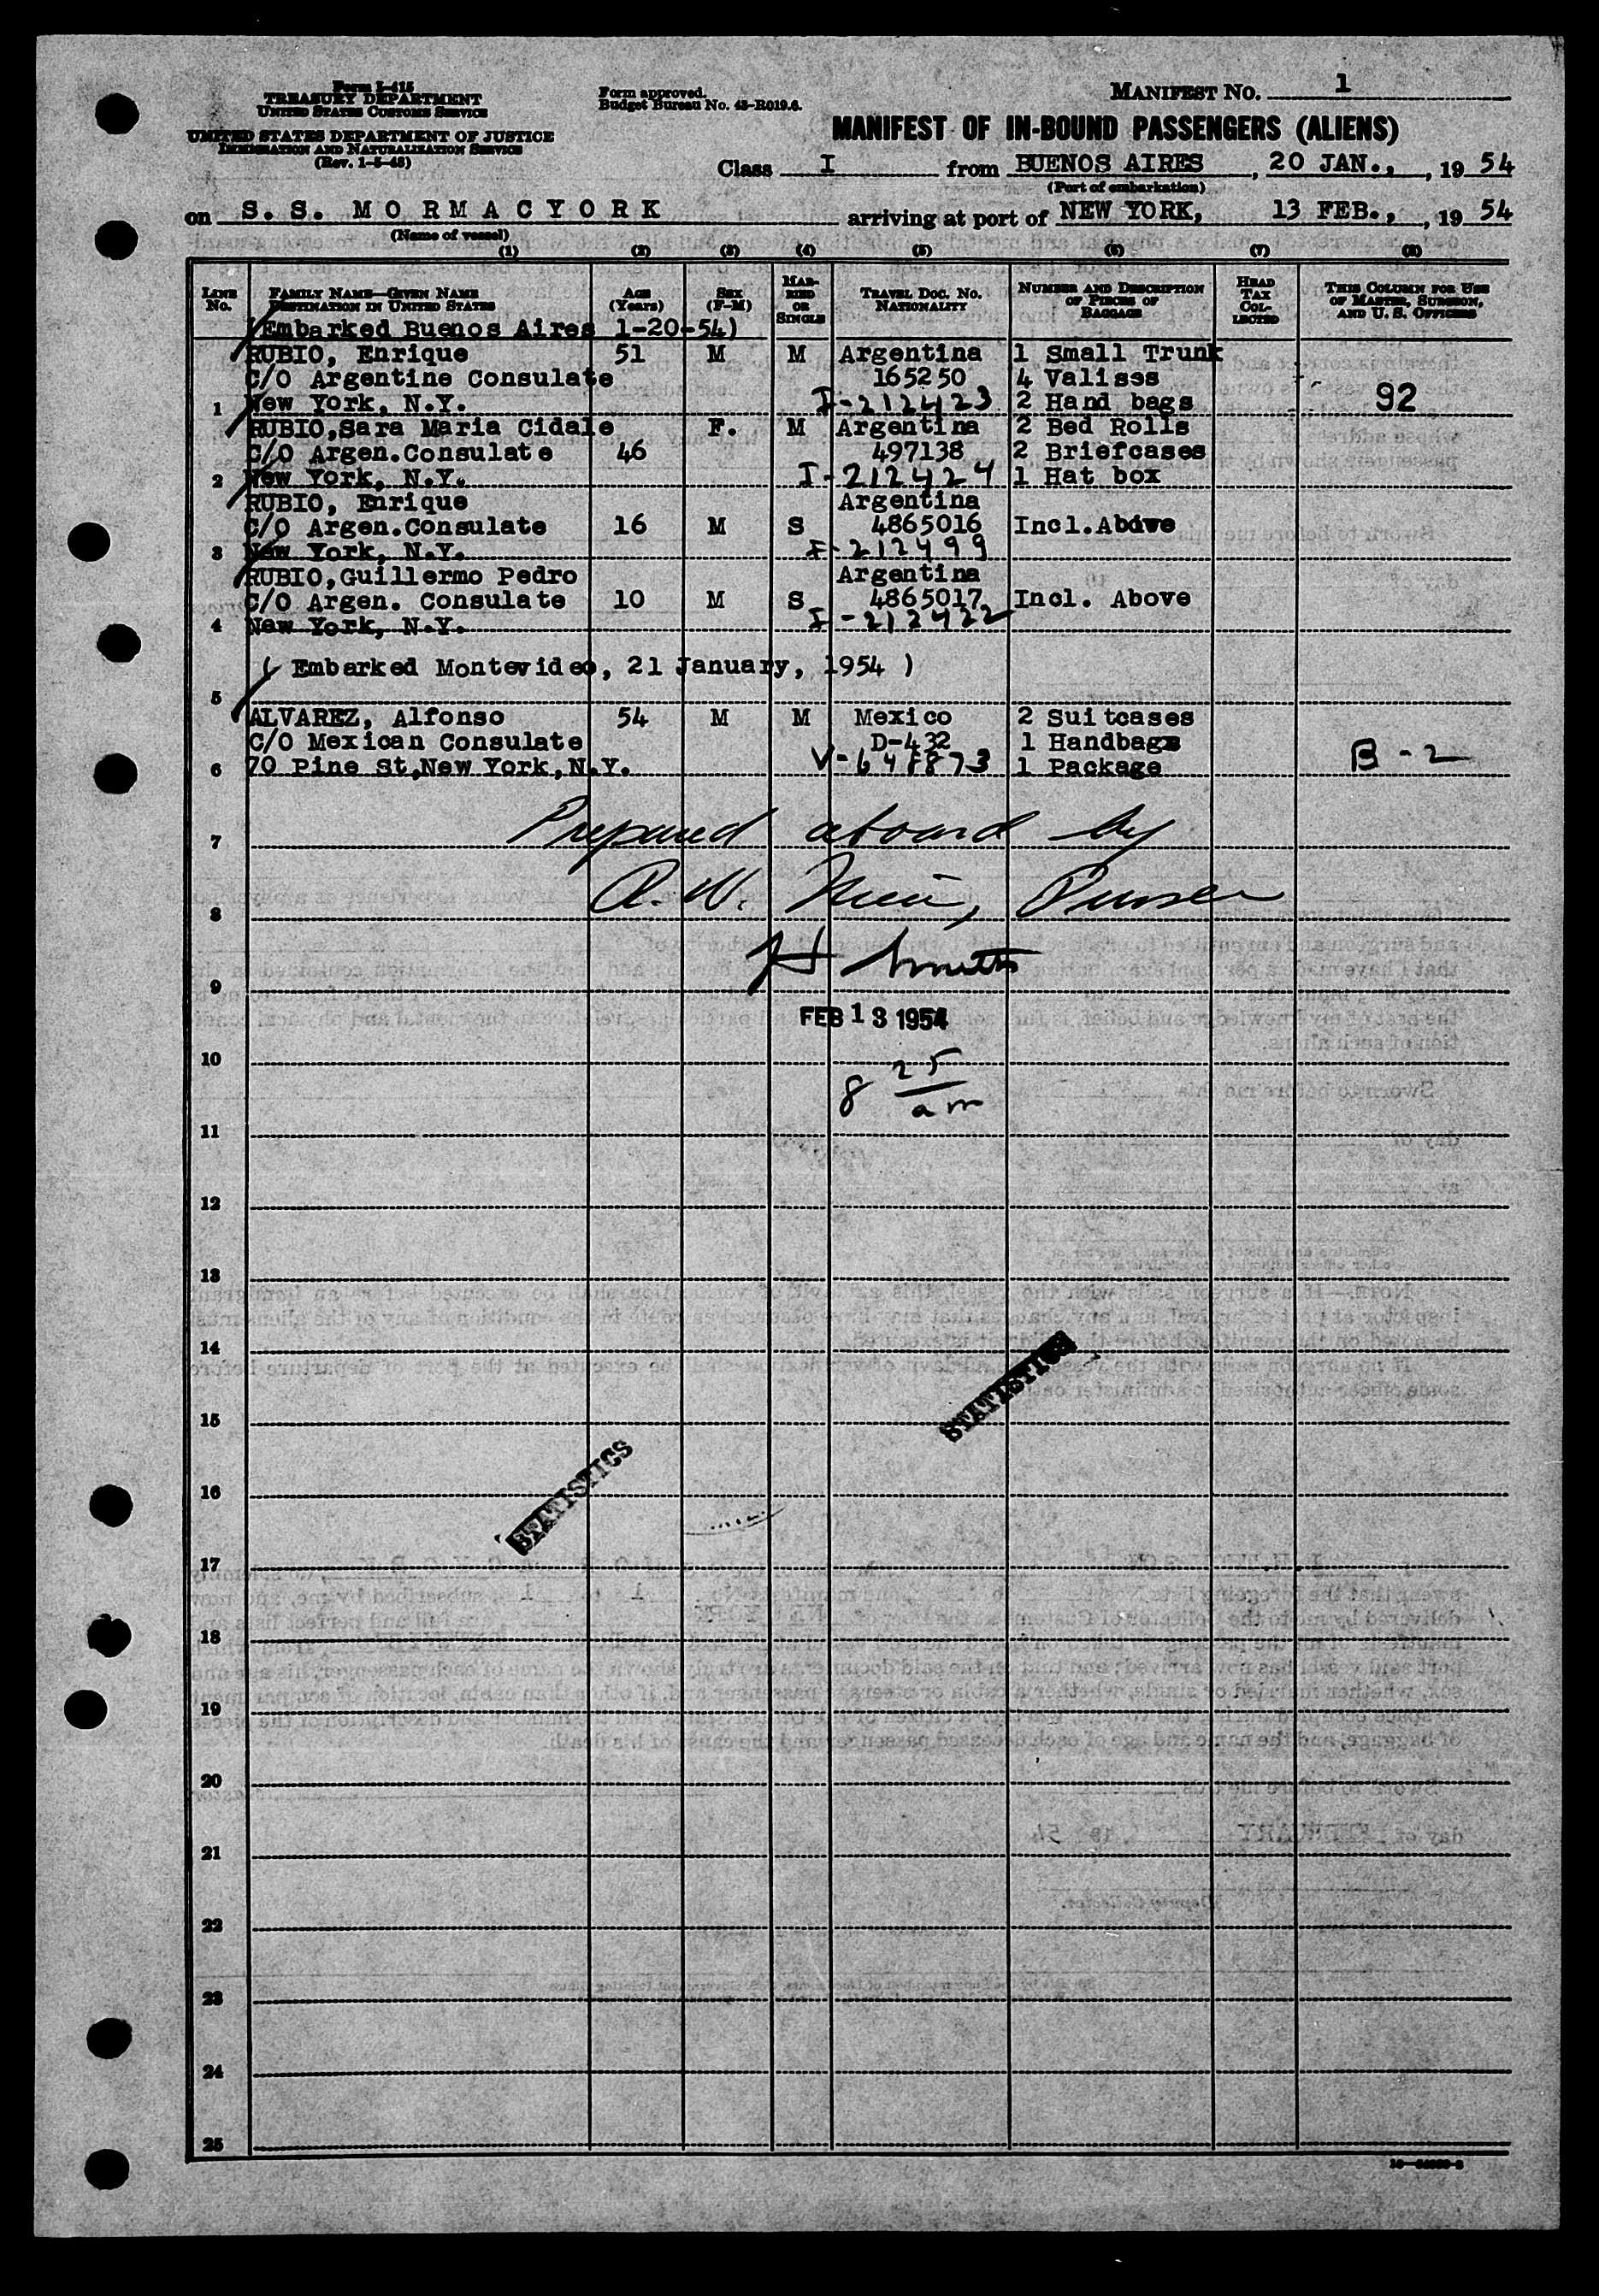 Form I-415
TREASURY DEPARTMENT
UNITED STATES CUSTOMS SERVICE
UNITED STATES DEPARTMENT OF JUSTICE
IMMIGRATION AND NATURALIZATION SERVICE
(Rev. 1-5-48)
Form approved.
Budget Bureau No. 43-R019.6.
MANIFEST NO. 1
MANIFEST OF IN-BOUND PASSENGERS (ALIENS)
Class I from BUENOS AIRES, 20 JAN., 19 54
(Port of embarkation)
on S. S. MORMACYORK arriving at port of NEW YORK, 13 FEB., 19 54
(Name of vessel)
(1) (2) (3) (4) (5) (6) (7) (8)
LINE No. FAMILY NAME—GIVEN NAME DESTINATION IN UNITED STATES AGE (Years) SEX (F-M) MARRIED OR SINGLE TRAVEL DOC. NO. NATIONALITY NUMBER AND DESCRIPTION OF PIECES OF BAGGAGE HEAD TAX COLLECTED THIS COLUMN FOR USE OF MASTER, SURGEON, AND U. S. OFFICERS
(Embarked Buenos Aires 1-20-54)
RUBIO, Enrique 51 M M Argentina 1 Small Trunk
C/O Argentine Consulate 165250 4 Valises
1 New York, N.Y. I-212423 2 Hand bags 92
RUBIO,Sara Maria Cidale F. M Argentina 2 Bed Rolls
C/O Argen.Consulate 46 497138 2 Briefcases
2 New York, N.Y. I-212424 1 Hat box
RUBIO, Enrique Argentina
C/O Argen.Consulate 16 M S 4865016 Incl.Above
3 New York, N.Y. I-212499
RUBIO,Guillermo Pedro Argentina
C/O Argen. Consulate 10 M S 4865017 Incl. Above
4 New York, N.Y. I-212422
( Embarked Montevideo, 21 January, 1954 )
5
ALVAREZ, Alfonso 54 M M Mexico 2 Suitcases
C/O Mexican Consulate D-432 1 Handbags
6 70 Pine St,New York,N.Y. V-648873 1 Package B-2
Prepared aboard by
7
A.W. Purser
8
H Smith
9
FEB 13 1954
10
8 25 am
11
12
13
14
STATISTICS
15
STATISTICS
16
17
18
19
20
21
22
23
24
25